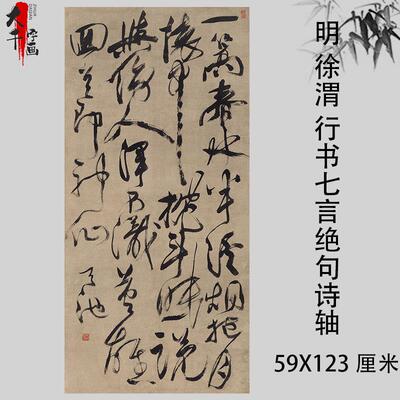 大千
字画
一篙春水半溪烟抱月
懷中枕斗眠說
與傍人渾不識英雄
回首即神仙
天池
明 徐渭 行书七言绝句诗轴
59X123 厘米